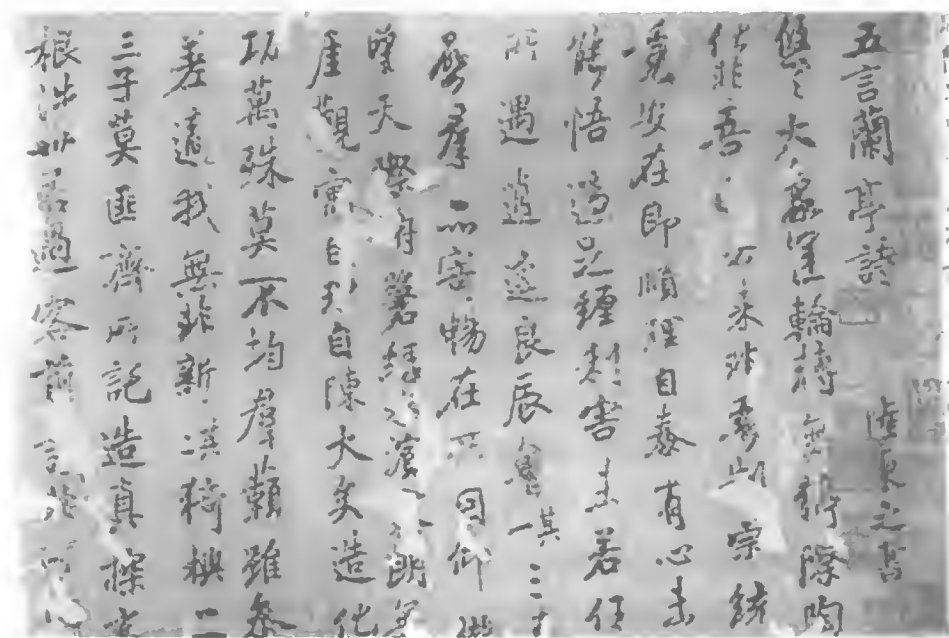 五言蘭亭詩 陸柬之書
悠々大象運輪轉無停際陶
化非吾去來非吾制宗統
竟安在即順理自泰有心未
能悟適足纏利害未若任
所遇逍遥良辰會 其一 三春
啓羣品寄暢在所因仰
望天際俯磐緑水濱寥朗無
厓觀寓目理自陳大矣造化
功萬殊莫不均羣籟雖參
差適我無非新 其二 猗與二
三子莫匪齊所託造真探玄
根涉世若過客前識非所